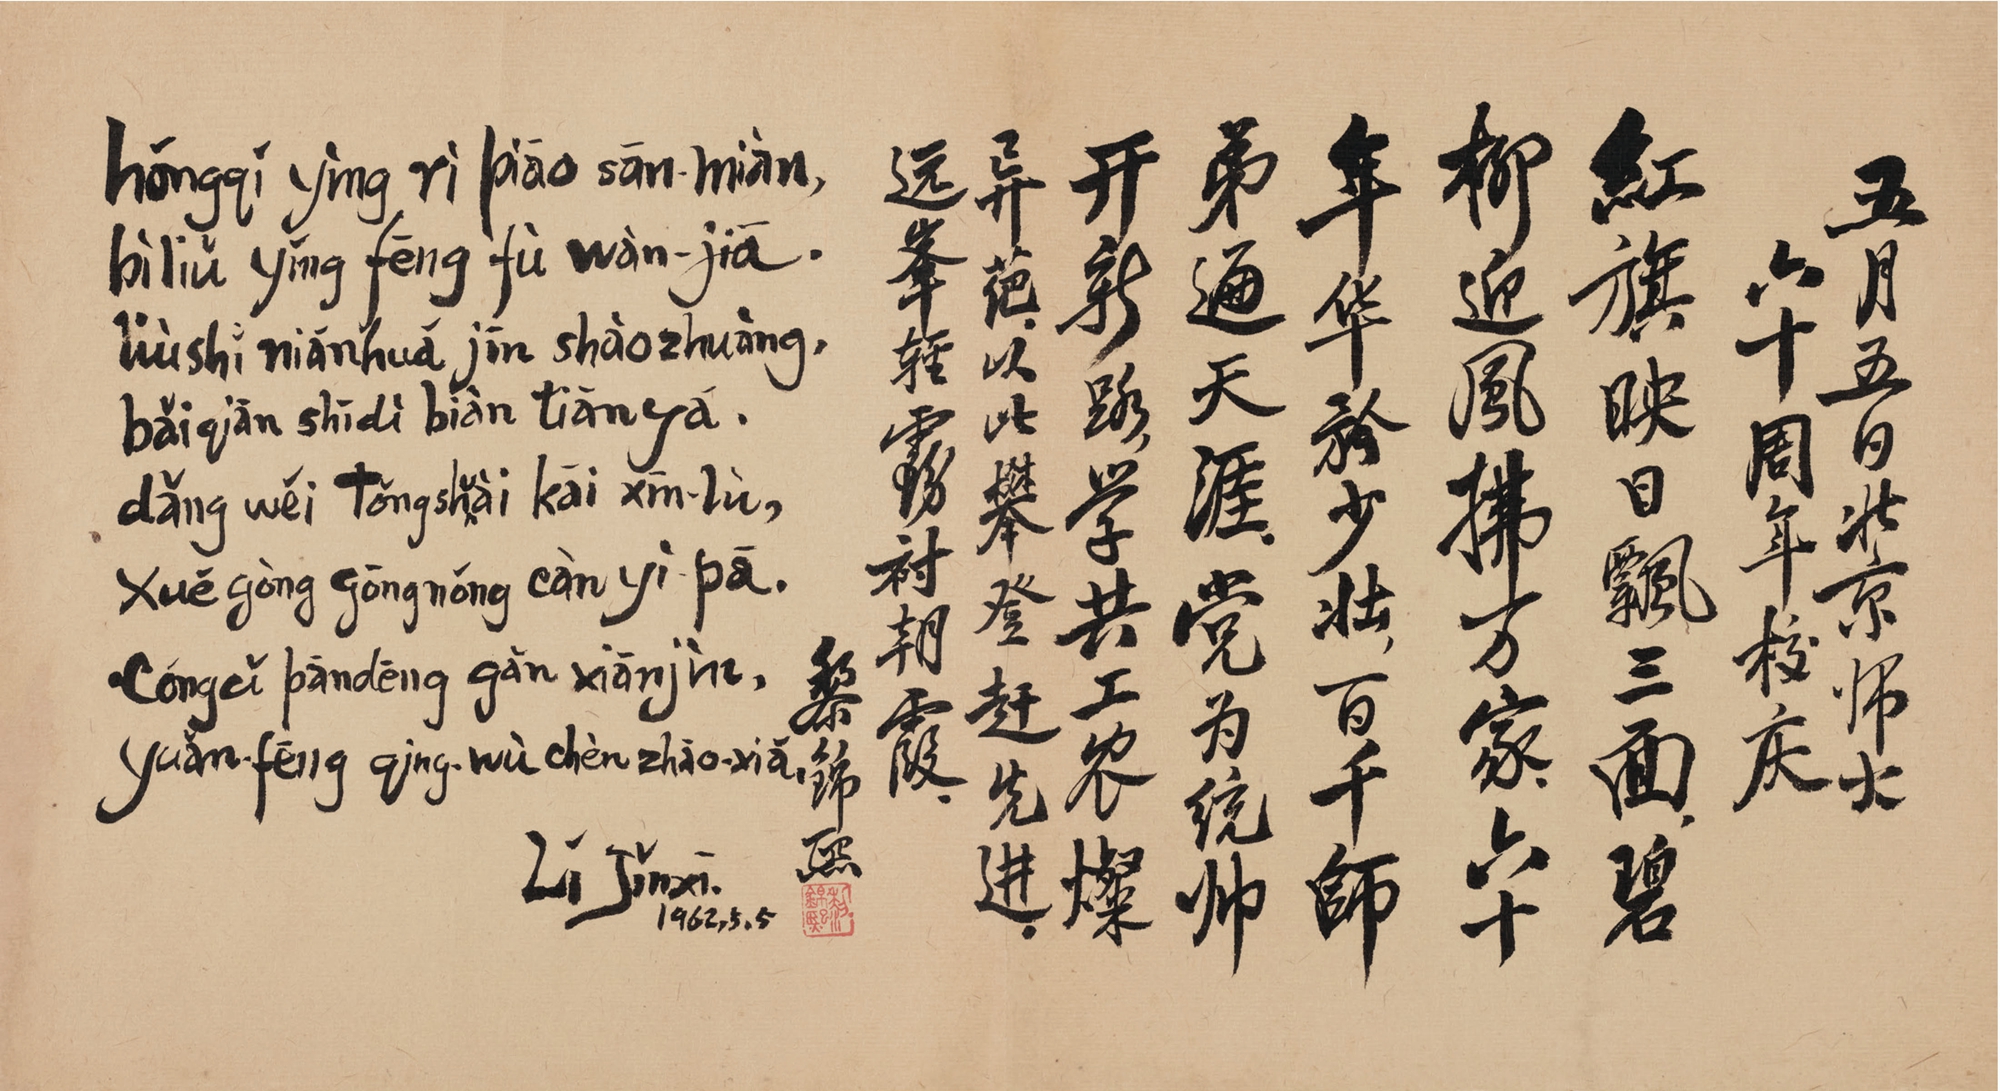 五月五日北京师大
六十周年校庆
紅旗映日飄三面、碧
柳迎風拂万家、六十
年华矜少壮、百千師
弟遍天涯、党为统帅
开新路、学共工农燦
异葩、从此攀登赶先进、
远峯轻雾衬朝霞、
黎锦熙
hóngqí yìng rì piāo sān-miàn,
bìliǔ yíng fēng fù wàn-jiā.
liùshí niánhuá jīn shàozhuàng,
bǎiqiān shīdì biàn tiānyá.
dǎng wéi tǒngshuài kāi xīn-lù,
xué gòng gōngnóng càn yì-pā.
Cóngcǐ pāndēng gǎn xiānjìn,
yuǎn-fēng qīng-wù chèn zhāo-xiá.
Lí Jǐnxī.
1962.5.5